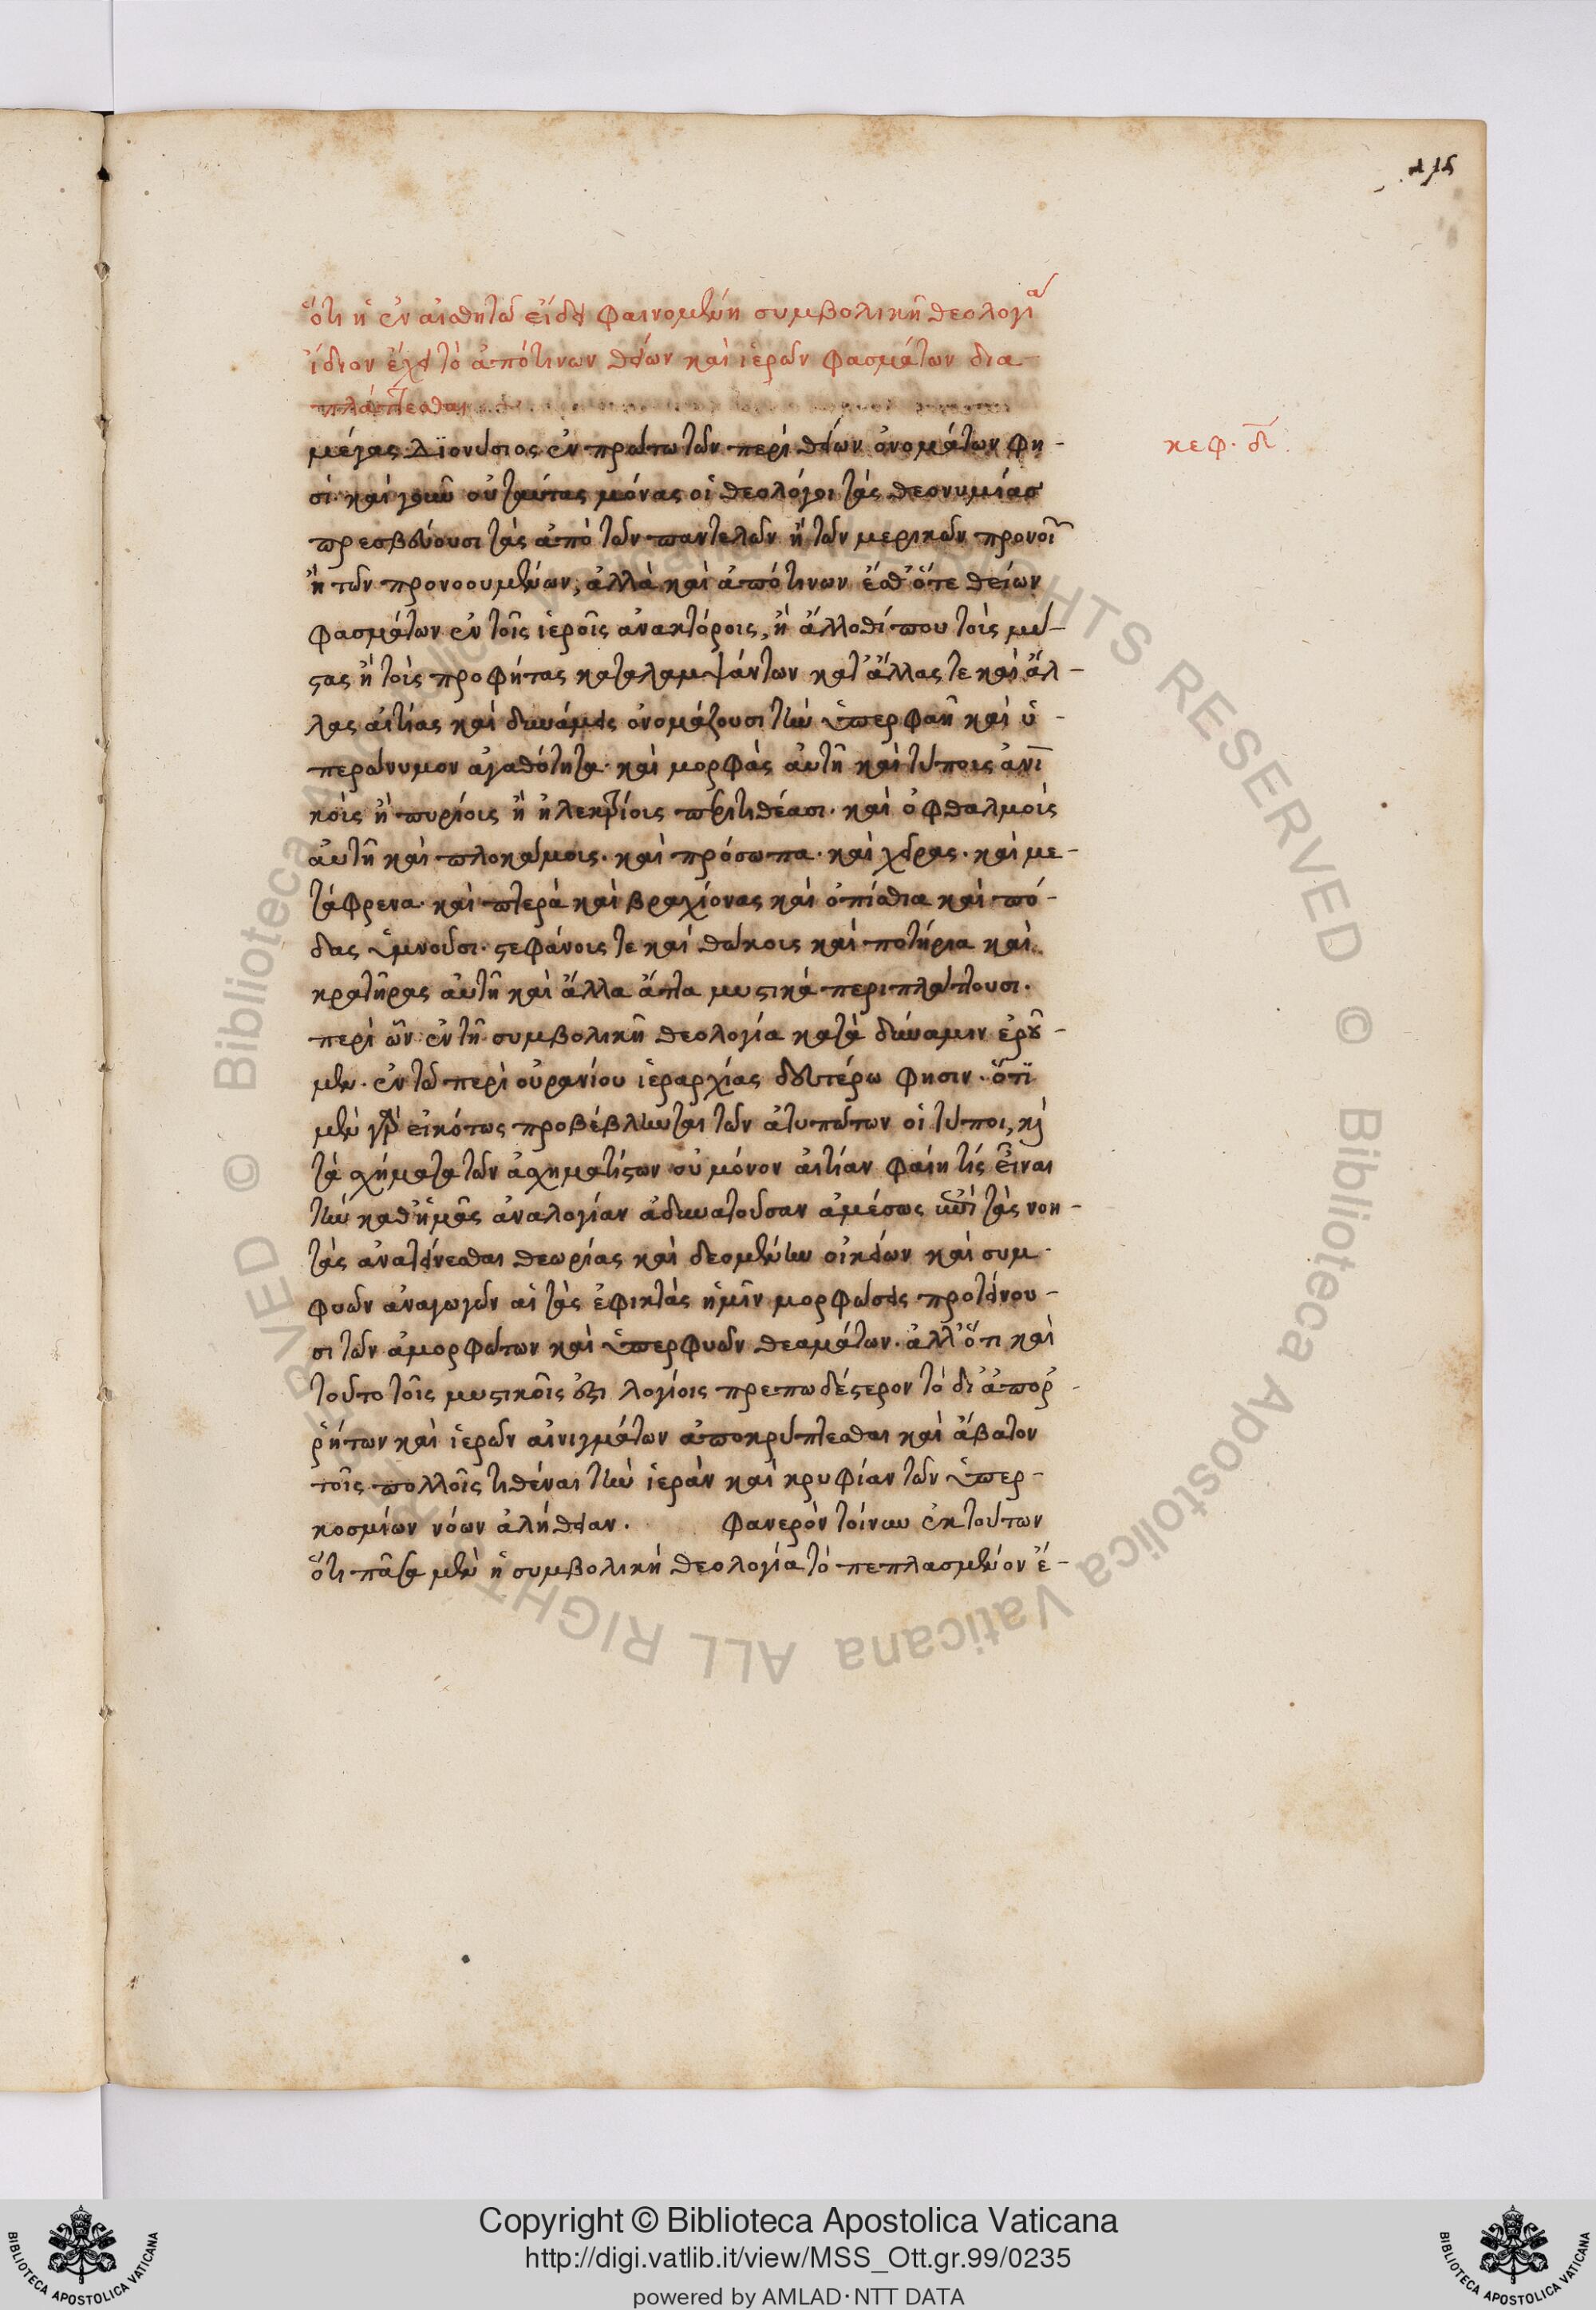 ὅτι ἡ ἐν αἰσθητῶ εἴδει φαινομένη συμβολικὴ θεολογία
ἴδιον ἔχει τὸ ἀπό τινων θείων καὶ ἱερῶν φασμάτων δια
πλάττεσθαι
μέγας Διονύσιος ἐν πρώτω τῶν περὶ θείων ὀνομάτων φη-
σί· καὶ γοῦν οὐ ταύτας μόνας οἱ θεολόγοι τὰς θεονυμίας
πρεσβεύουσι τὰς ἀπὸ τῶν παντελῶν ἢ τῶν μερικῶν προνοι
ἢ τῶν προνοουμένων, ἀλλὰ καὶ ἀπό τινων ἔσθ' ὅτε θείων
φασμάτων ἐν τοῖς ἱεροῖς ἀνακτόροις, ἢ ἄλλοθί που τοὺς μύ-
στας ἢ τοὺς προφήτας καταλαμψάντων κατ' ἄλλας τε καὶ ἄλ-
λας αἰτίας καὶ δυνάμεις ὀνομάζουσι τὴν ὑπερφαῆ καὶ ὑ-
περώνυμον ἀγαθότητα· καὶ μορφὰς αὐτῆ καὶ τύπους ἀνι
κοὺς ἢ πυρίους ἢ ἠλεκτρίους περιτιθέασι· καὶ ὀφθαλμοὺς
αὐτῆ καὶ πλοκάμους· καὶ πρόσωπα· καὶ χεῖρας· καὶ με-
τάφρενα· καὶ πτερὰ καὶ βραχίονας καὶ ὀπίσθια καὶ πό-
δας ὑμνοῦσι· στεφάνους τε καὶ θώκους καὶ ποτήρια καὶ
κρατῆρας αὐτῆ καὶ ἄλλα ἄττα μυστικὰ περιπλάττουσι·
περὶ ὧν ἐν τῆ συμβολικῆ θεολογία κατὰ δύναμιν ἐροῦ-
μεν· ἐν τῶ περὶ οὐρανίου ἱεραρχίας δευτέρω φησιν· ὅτι
μὲν γὰρ εἰκότως προβέβληνται τῶν ἀτυπώτων οἱ τύποι, κὶ
τὰ σχήματα τῶν ἀσχηματίστων οὐ μόνον αἰτίαν φαίη τίς εἶναι
τὴν καθ' ἡμᾶς ἀναλογίαν ἀδυνατοῦσαν ἀμέσως ἐπὶ τὰς νοη-
τὰς ἀνατείνεσθαι θεωρίας καὶ δεομένην οἰκείων καὶ συμ-
φυῶν ἀναγωγῶν αἱ τὰς ἐφικτὰς ἡμῖν μορφώσεις προτείνου-
σι τῶν ἀμορφώτων καὶ ὑπερφυῶν θεαμάτων· ἀλλ' ὅτι καὶ
τοῦτο τοῖς μυστικοῖς ἐστι λογίοις πρεπωδέστερον τὸ δι' ἀποῤ-
ῥήτων καὶ ἱερῶν αἰνιγμάτων ἀποκρύπτεσθαι καὶ ἄβατον
τοῖς πολλοῖς τιθέναι τὴν ἱερὰν καὶ κρυφίαν τῶν ὑπερ-
κοσμίων νόων ἀλήθειαν. Φανερὸν τοίνυν ἐκ τούτων
ὅτι πᾶσα μὲν ἡ συμβολικὴ θεολογία τὸ πεπλασμένον ἔ-
κεφ. δʹ.
Copyright © Biblioteca Apostolica Vaticana
http://digi.vatlib.it/view/MSS_Ott.gr.99/0235
powered by AMLAD·NTT DATA
BIBLIOTECA APOSTOLICA VATICANA
BIBLIOTECA APOSTOLICA VATICANA